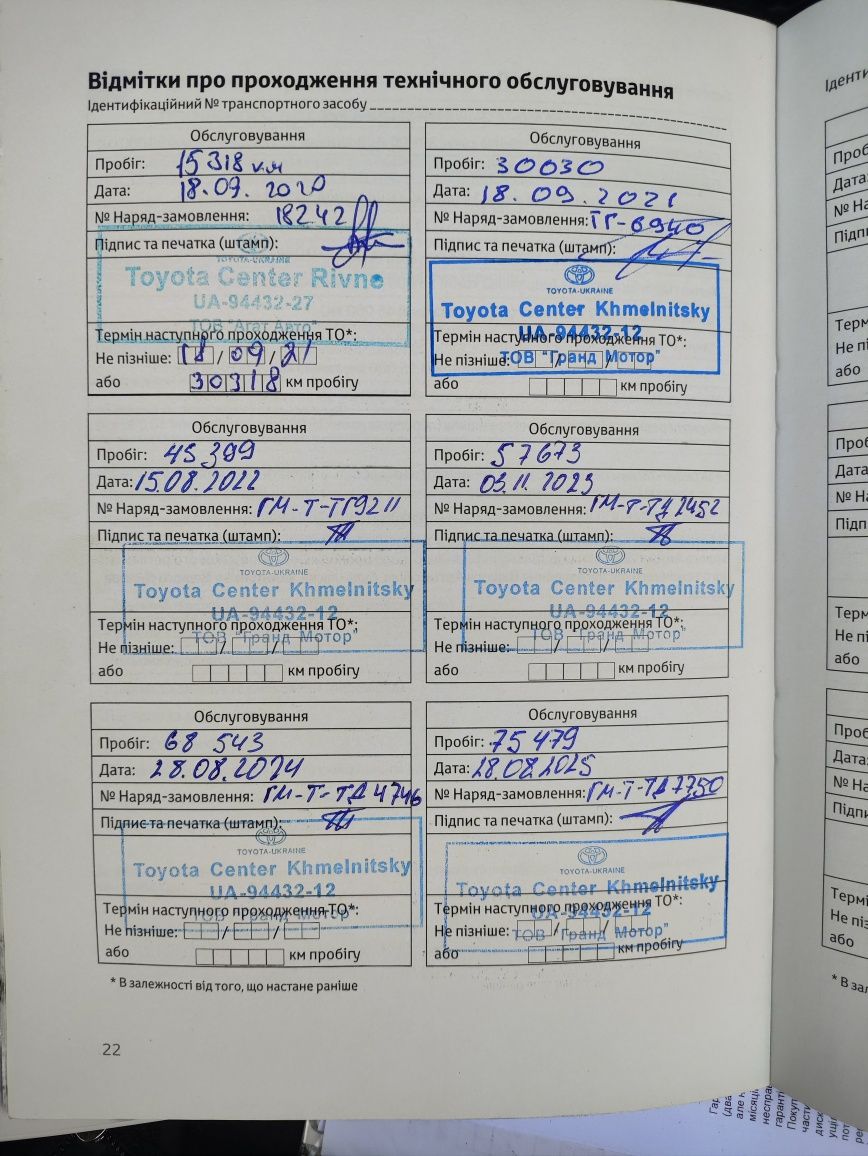 Відмітки про проходження технічного обслуговування
Ідентифікаційний № транспортного засобу
Обслуговування
Пробіг: 15318 км
Дата: 18.09.2020
№ Наряд-замовлення: 18242
Підпис та печатка (штамп):
TOYOTA-UKRAINE
Toyota Center Rivne
UA-94432-27
ТОВ "Агат Авто"
Термін наступного проходження ТО*:
Не пізніше: 18/09/21
або 30318 км пробігу
Обслуговування
Пробіг: 30030
Дата: 18.09.2021
№ Наряд-замовлення: ТГ-6940
Підпис та печатка (штамп):
TOYOTA-UKRAINE
Toyota Center Khmelnitsky
UA-94432-12
Термін наступного проходження ТО*:
ТОВ "Гранд Мотор"
Не пізніше: / /
або км пробігу
Обслуговування
Пробіг: 45399
Дата: 15.08.2022
№ Наряд-замовлення: ГМ-Т-ТГ9211
Підпис та печатка (штамп):
TOYOTA-UKRAINE
Toyota Center Khmelnitsky
UA-94432-12
Термін наступного проходження ТО*:
ТОВ "Гранд Мотор"
Не пізніше: / /
або км пробігу
Обслуговування
Пробіг: 57673
Дата: 03.11.2023
№ Наряд-замовлення: ГМ-Т-ТД2452
Підпис та печатка (штамп):
TOYOTA-UKRAINE
Toyota Center Khmelnitsky
UA-94432-12
Термін наступного проходження ТО*:
ТОВ "Гранд Мотор"
Не пізніше: / /
або км пробігу
Обслуговування
Пробіг: 68 543
Дата: 28.08.2024
№ Наряд-замовлення: ГМ-Т-ТД4746
Підпис та печатка (штамп):
TOYOTA-UKRAINE
Toyota Center Khmelnitsky
UA-94432-12
Термін наступного проходження ТО*:
ТОВ "Гранд Мотор"
Не пізніше: / /
або км пробігу
Обслуговування
Пробіг: 75 479
Дата: 28.08.2025
№ Наряд-замовлення: ГМ-Т-ТД7750
Підпис та печатка (штамп):
TOYOTA-UKRAINE
Toyota Center Khmelnitsky
UA-94432-12
Термін наступного проходження ТО*:
ТОВ "Гранд Мотор"
Не пізніше: / /
або км пробігу
* В залежності від того, що настане раніше
22